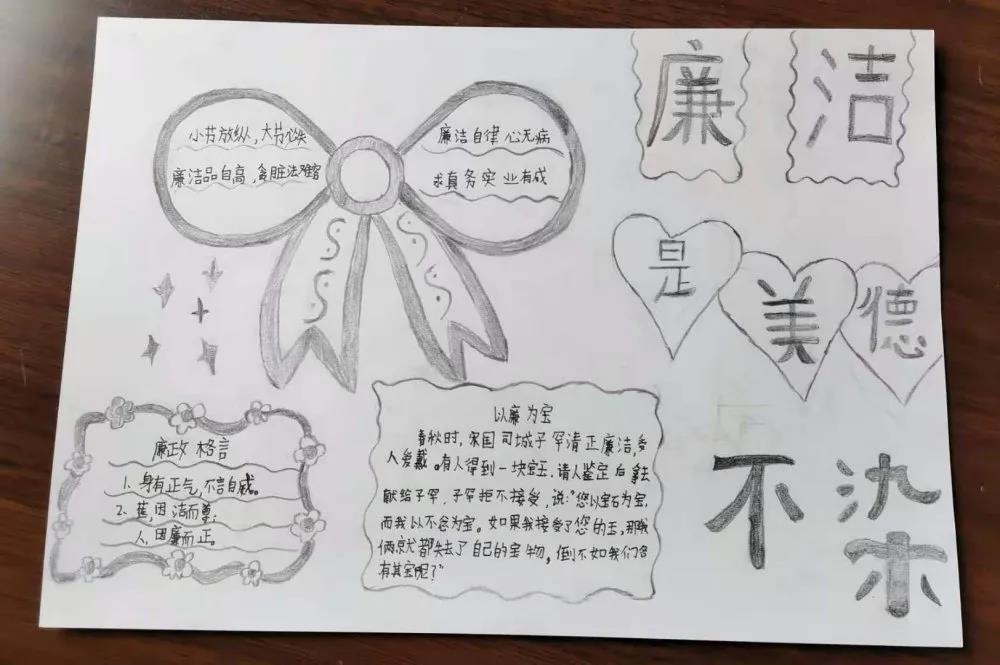 小节放纵,大节必失
廉洁品自高,贪脏法难容
廉洁自律 心无病
求真务实 业有成
廉洁
是美德
不染
廉政格言
1、身有正气,不言自威。
2、莲,因洁而尊;
人,因廉而正。
以廉为宝
春秋时,宋国司城子罕清正廉洁,受
人爱戴。有人得到一块宝玉,请人鉴定后拿去
献给子罕,子罕拒不接受,说:“您以宝石为宝,
而我以不贪为宝。如果我接受了您的玉,那我
俩就都失去了自己的宝物,倒不如我们各
有其宝呢?”